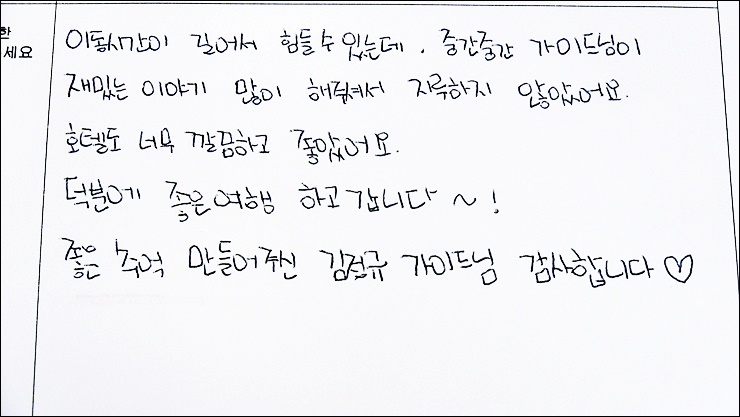 한
세요
이동시간이 길어서 힘들수있는데. 중간중간 가이드님이
재밌는 이야기 많이 해줘서 지루하지 않았어요.
호텔도 너무 깔끔하고 좋았어요.
덕분에 좋은여행 하고갑니다~!
좋은 추억 만들어주신 가이드님 감사합니다♡